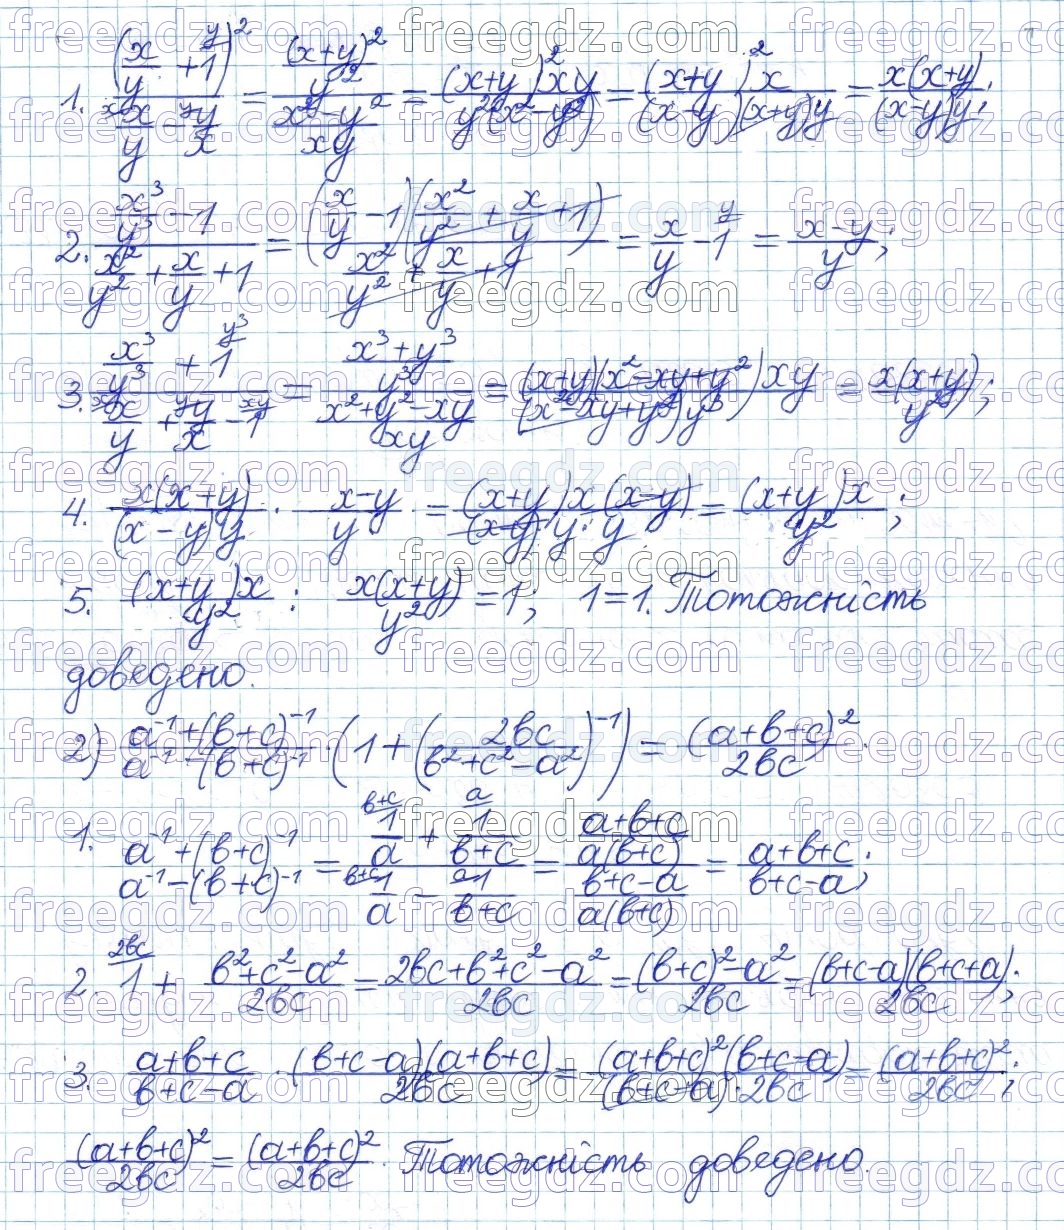 1. ((x/y + 1^{\y})²)/(^{x\}x/y − ^{y\}y/x) = ((x+y)²/y²)/((x²−y²)/(xy)) = ((x+y)²xy)/(y²(x²−y²)) = ((x+y)²x)/((x−y)(x+y)y) = (x(x+y))/((x−y)y);
2. (x³/y³ − 1)/(x²/y² + x/y + 1) = ((x/y − 1)(x²/y² + x/y + 1))/(x²/y² + x/y + 1) = x/y − 1^{\y} = (x−y)/y;
3. (x³/y³ + 1^{\y³})/(^{x\}x/y + ^{y\}y/x − 1^{\xy}) = ((x³+y³)/y³)/((x²+y²−xy)/(xy)) = ((x+y)(x²−xy+y²)xy)/((x²−xy+y²)y³) = (x(x+y))/y²;
4. (x(x+y))/((x−y)y) · (x−y)/y = ((x+y)x(x−y))/((x−y)·y·y) = ((x+y)x)/y²;
5. ((x+y)x)/y² : (x(x+y))/y² = 1; 1=1. Тотожність
доведено.
2) (a⁻¹+(b+c)⁻¹)/(a⁻¹−(b+c)⁻¹) · (1 + (2bc/(b²+c²−a²))⁻¹) = (a+b+c)²/(2bc).
1. (a⁻¹+(b+c)⁻¹)/(a⁻¹−(b+c)⁻¹) = (^{b+c\}1/a + ^{a\}1/(b+c))/(^{b+c\}1/a − ^{a\}1/(b+c)) = ((a+b+c)/(a(b+c)))/((b+c−a)/(a(b+c))) = (a+b+c)/(b+c−a);
2. ^{2bc\}1 + (b²+c²−a²)/(2bc) = (2bc+b²+c²−a²)/(2bc) = ((b+c)²−a²)/(2bc) = ((b+c−a)(b+c+a))/(2bc);
3. (a+b+c)/(b+c−a) · ((b+c−a)(a+b+c))/(2bc) = ((a+b+c)²(b+c−a))/((b+c−a)·2bc) = (a+b+c)²/(2bc);
(a+b+c)²/(2bc) = (a+b+c)²/(2bc). Тотожність доведено.
freegdz.com